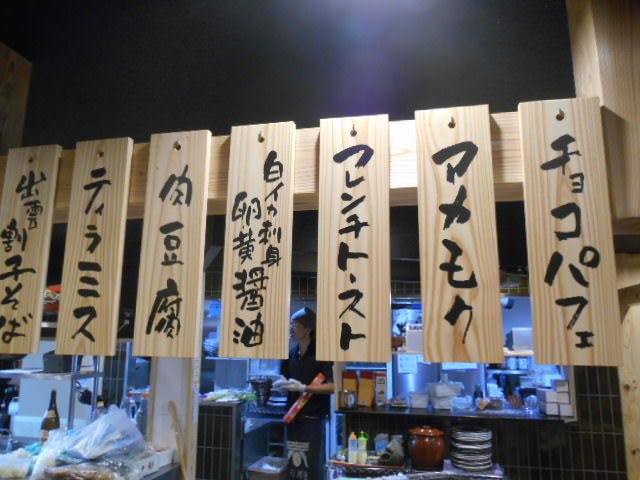 チョコパフェ
アカモク
フレンチトースト
白イカ刺身
卵黄醤油
肉豆腐
ティラミス
出雲
割子そば